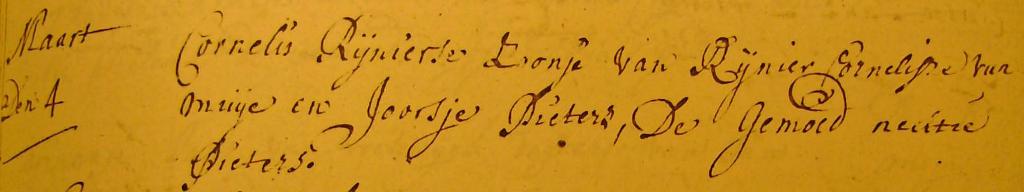 Maart Cornelis Rijnierse Zonje van Rijnier Cornelisse van
Den 4 muije en Joosje Pieters, De Gemoed neeltie
Pieters.